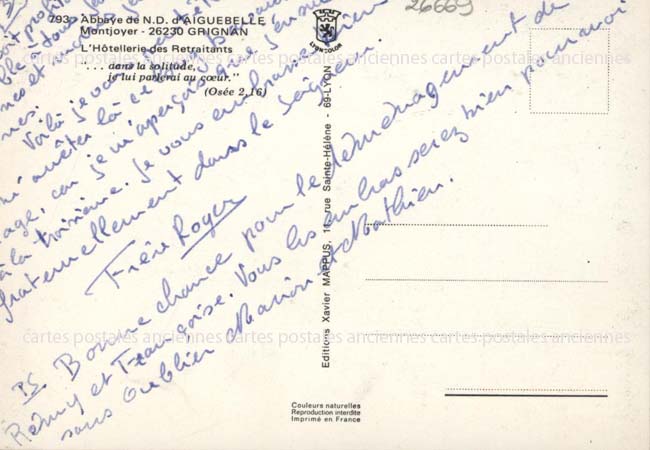 793 - Abbaye de N.D. d'AIGUEBELLE
Montjoyer - 26230 GRIGNAN
L'Hôtellerie des Retraitants
". . . dans la solitude,
je lui parlerai au cœur."
(Osée 2,16)
26669
LYON COLOR
Voilà je vous
arrêter là ce
age, car je m'aperçois que j'en suis
à la troisième. Je vous embrasse bien
fraternellement dans le Seigneur.
Frère Roger
PS Bonne chance pour le déménagement de
Rémy et Françoise. Vous les embrasserez bien pour moi
sans oublier Marion et Mathieu.
Editions Xavier MAPPUS, 11, rue Sainte-Hélène - 69-LYON
cartes postales anciennes cartes postales anciennes cartes postales anciennes
cartes postales anciennes cartes postales anciennes cartes postales anciennes
Couleurs naturelles
Reproduction interdite
Imprimé en France